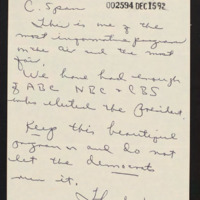 002594 DEC 15 92
C. Span
This is one of the
most informative programs
on the air and the most
fair.
We have had enough
of ABC NBC & CBS
who elected the President.
Keep this beautiful
program on and do not
let the democrats
ruin it.